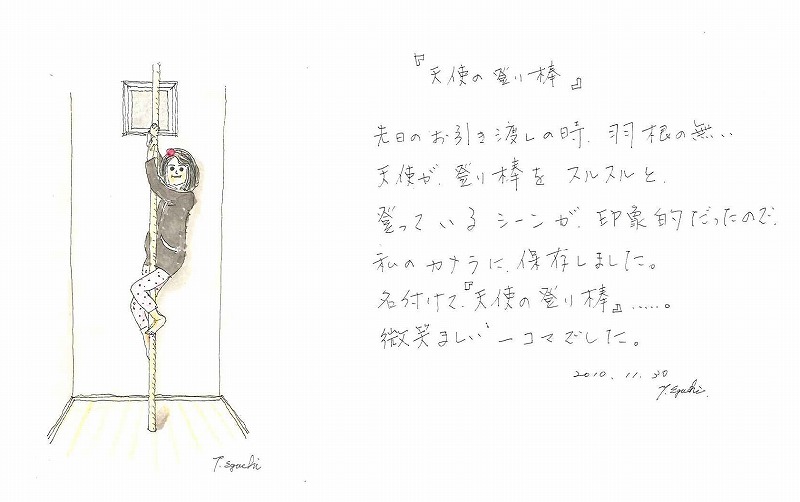 『天使の登り棒』
先日のお引き渡しの時、羽根の無い
天使が、登り棒をスルスルと、
登っているシーンが、印象的だったので、
私のカメラに、保存しました。
名付けて、『天使の登り棒』……。
微笑ましい一コマでした。
2010.11.30
T.Eguchi.
T.Eguchi